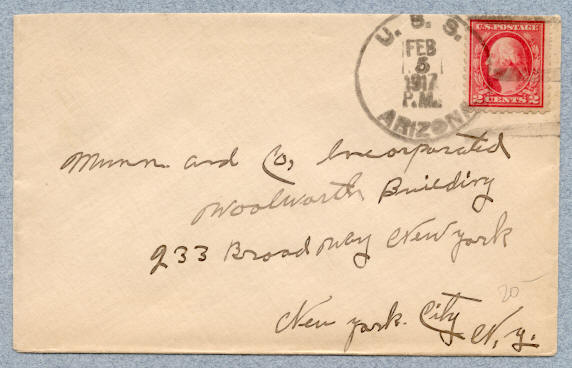 U. S. S.
FEB
5
1917
P.M.
ARIZONA
U.S. POSTAGE
2 CENTS 2
Munn and Co, Incorporated
Woolworth Building
233 Broadway New York
New York City N.Y.
20